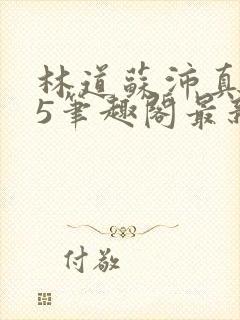 林道蘇沛真
5筆趣閣最新
付敬